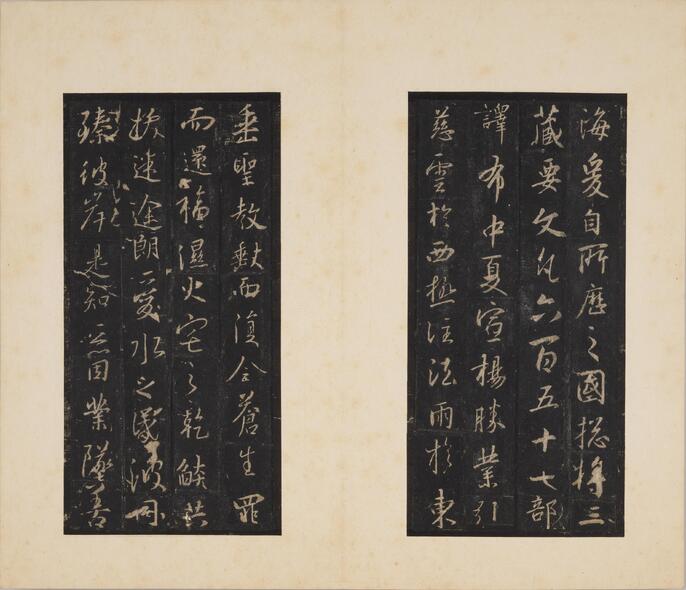 海爰自所歷之國捴將三
藏要文凡六百五十七部
譯布中夏宣揚勝業引
慈雲於西極注法雨於東
垂聖教缺而復全蒼生罪
而還福濕火宅之乾焰共
拔迷途朗愛水之昏波同
臻彼岸是知惡因業墜善